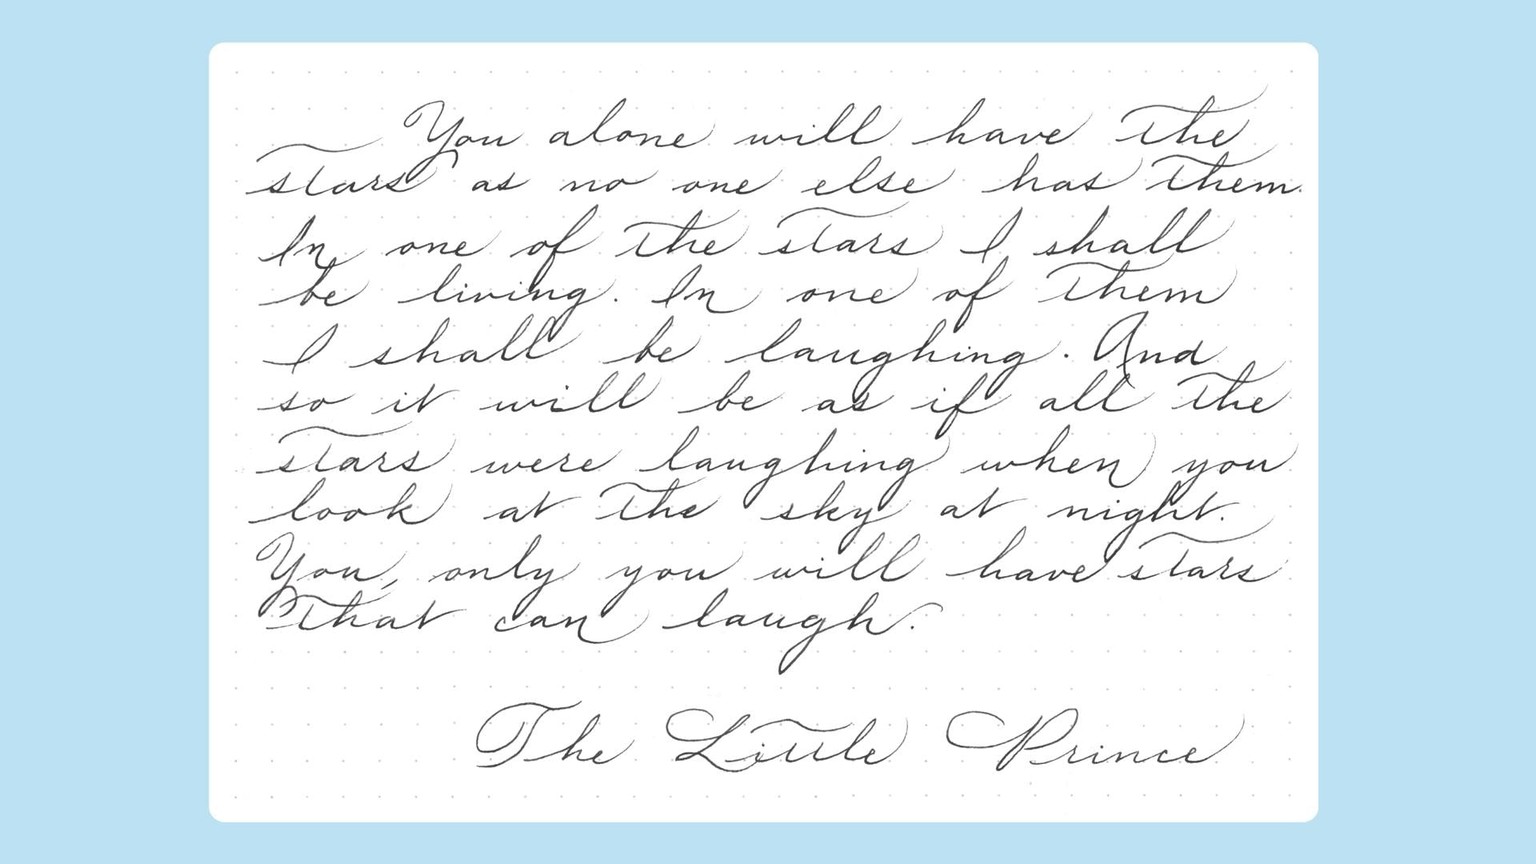 You alone will have the
stars as no one else has them.
In one of the stars I shall
be living. In one of them
I shall be laughing. And
so it will be as if all the
stars were laughing when you
look at the sky at night.
You, only you will have stars
that can laugh.
The Little Prince